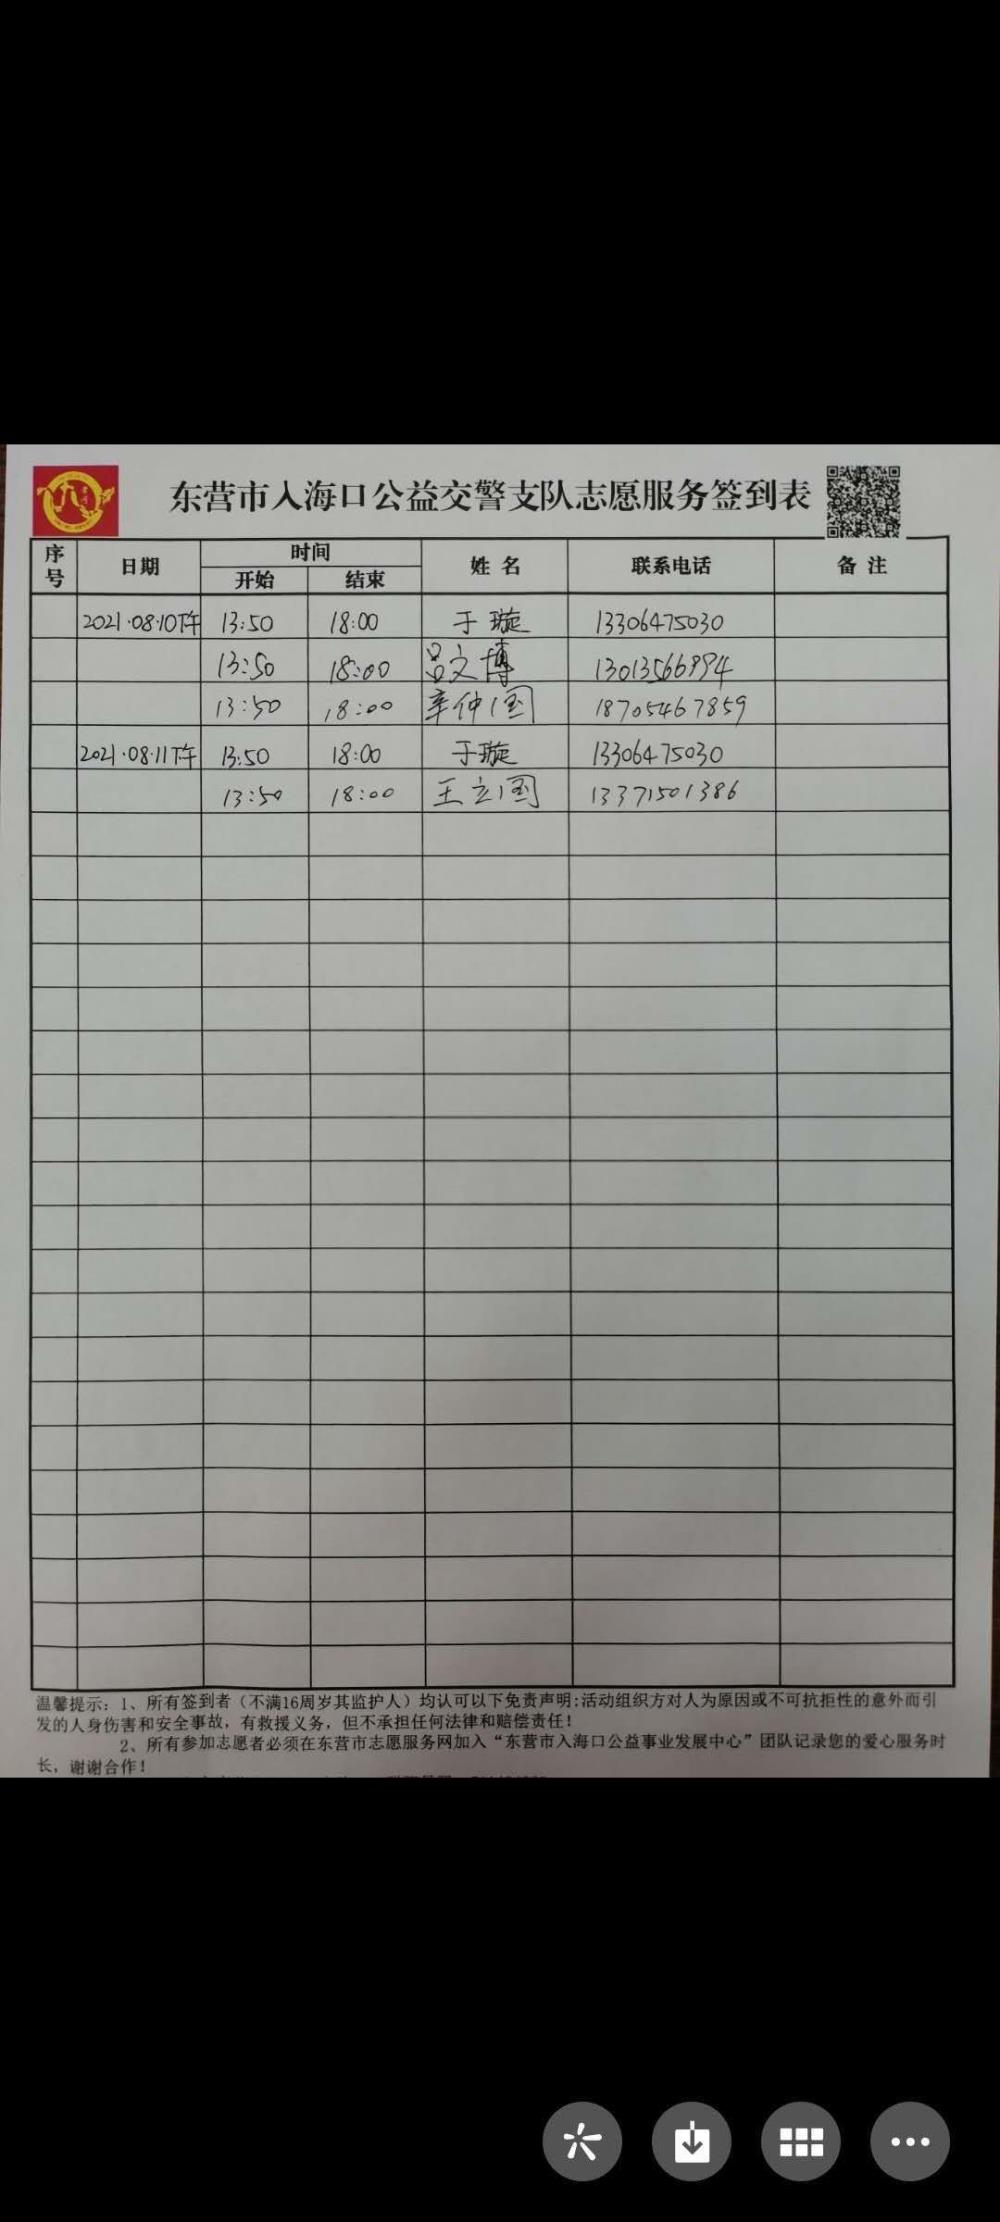 东营市入海口公益交警支队志愿服务签到表
序号 日期 时间 姓名 联系电话 备注
开始 结束
2021.08.10下午 13:50 18:00 于璇 13306475030
13:50 18:00 吕文博 13013566994
13:50 18:00 辛仲国 18705467859
2021.08.11下午 13:50 18:00 于璇 13306475030
13:50 18:00 王立国 13371501386
温馨提示：1、所有签到者（不满16周岁其监护人）均认可以下免责声明:活动组织方对人为原因或不可抗拒性的意外而引
发的人身伤害和安全事故，有救援义务，但不承担任何法律和赔偿责任！
2、所有参加志愿者必须在东营市志愿服务网加入“东营市入海口公益事业发展中心”团队记录您的爱心服务时
长，谢谢合作！